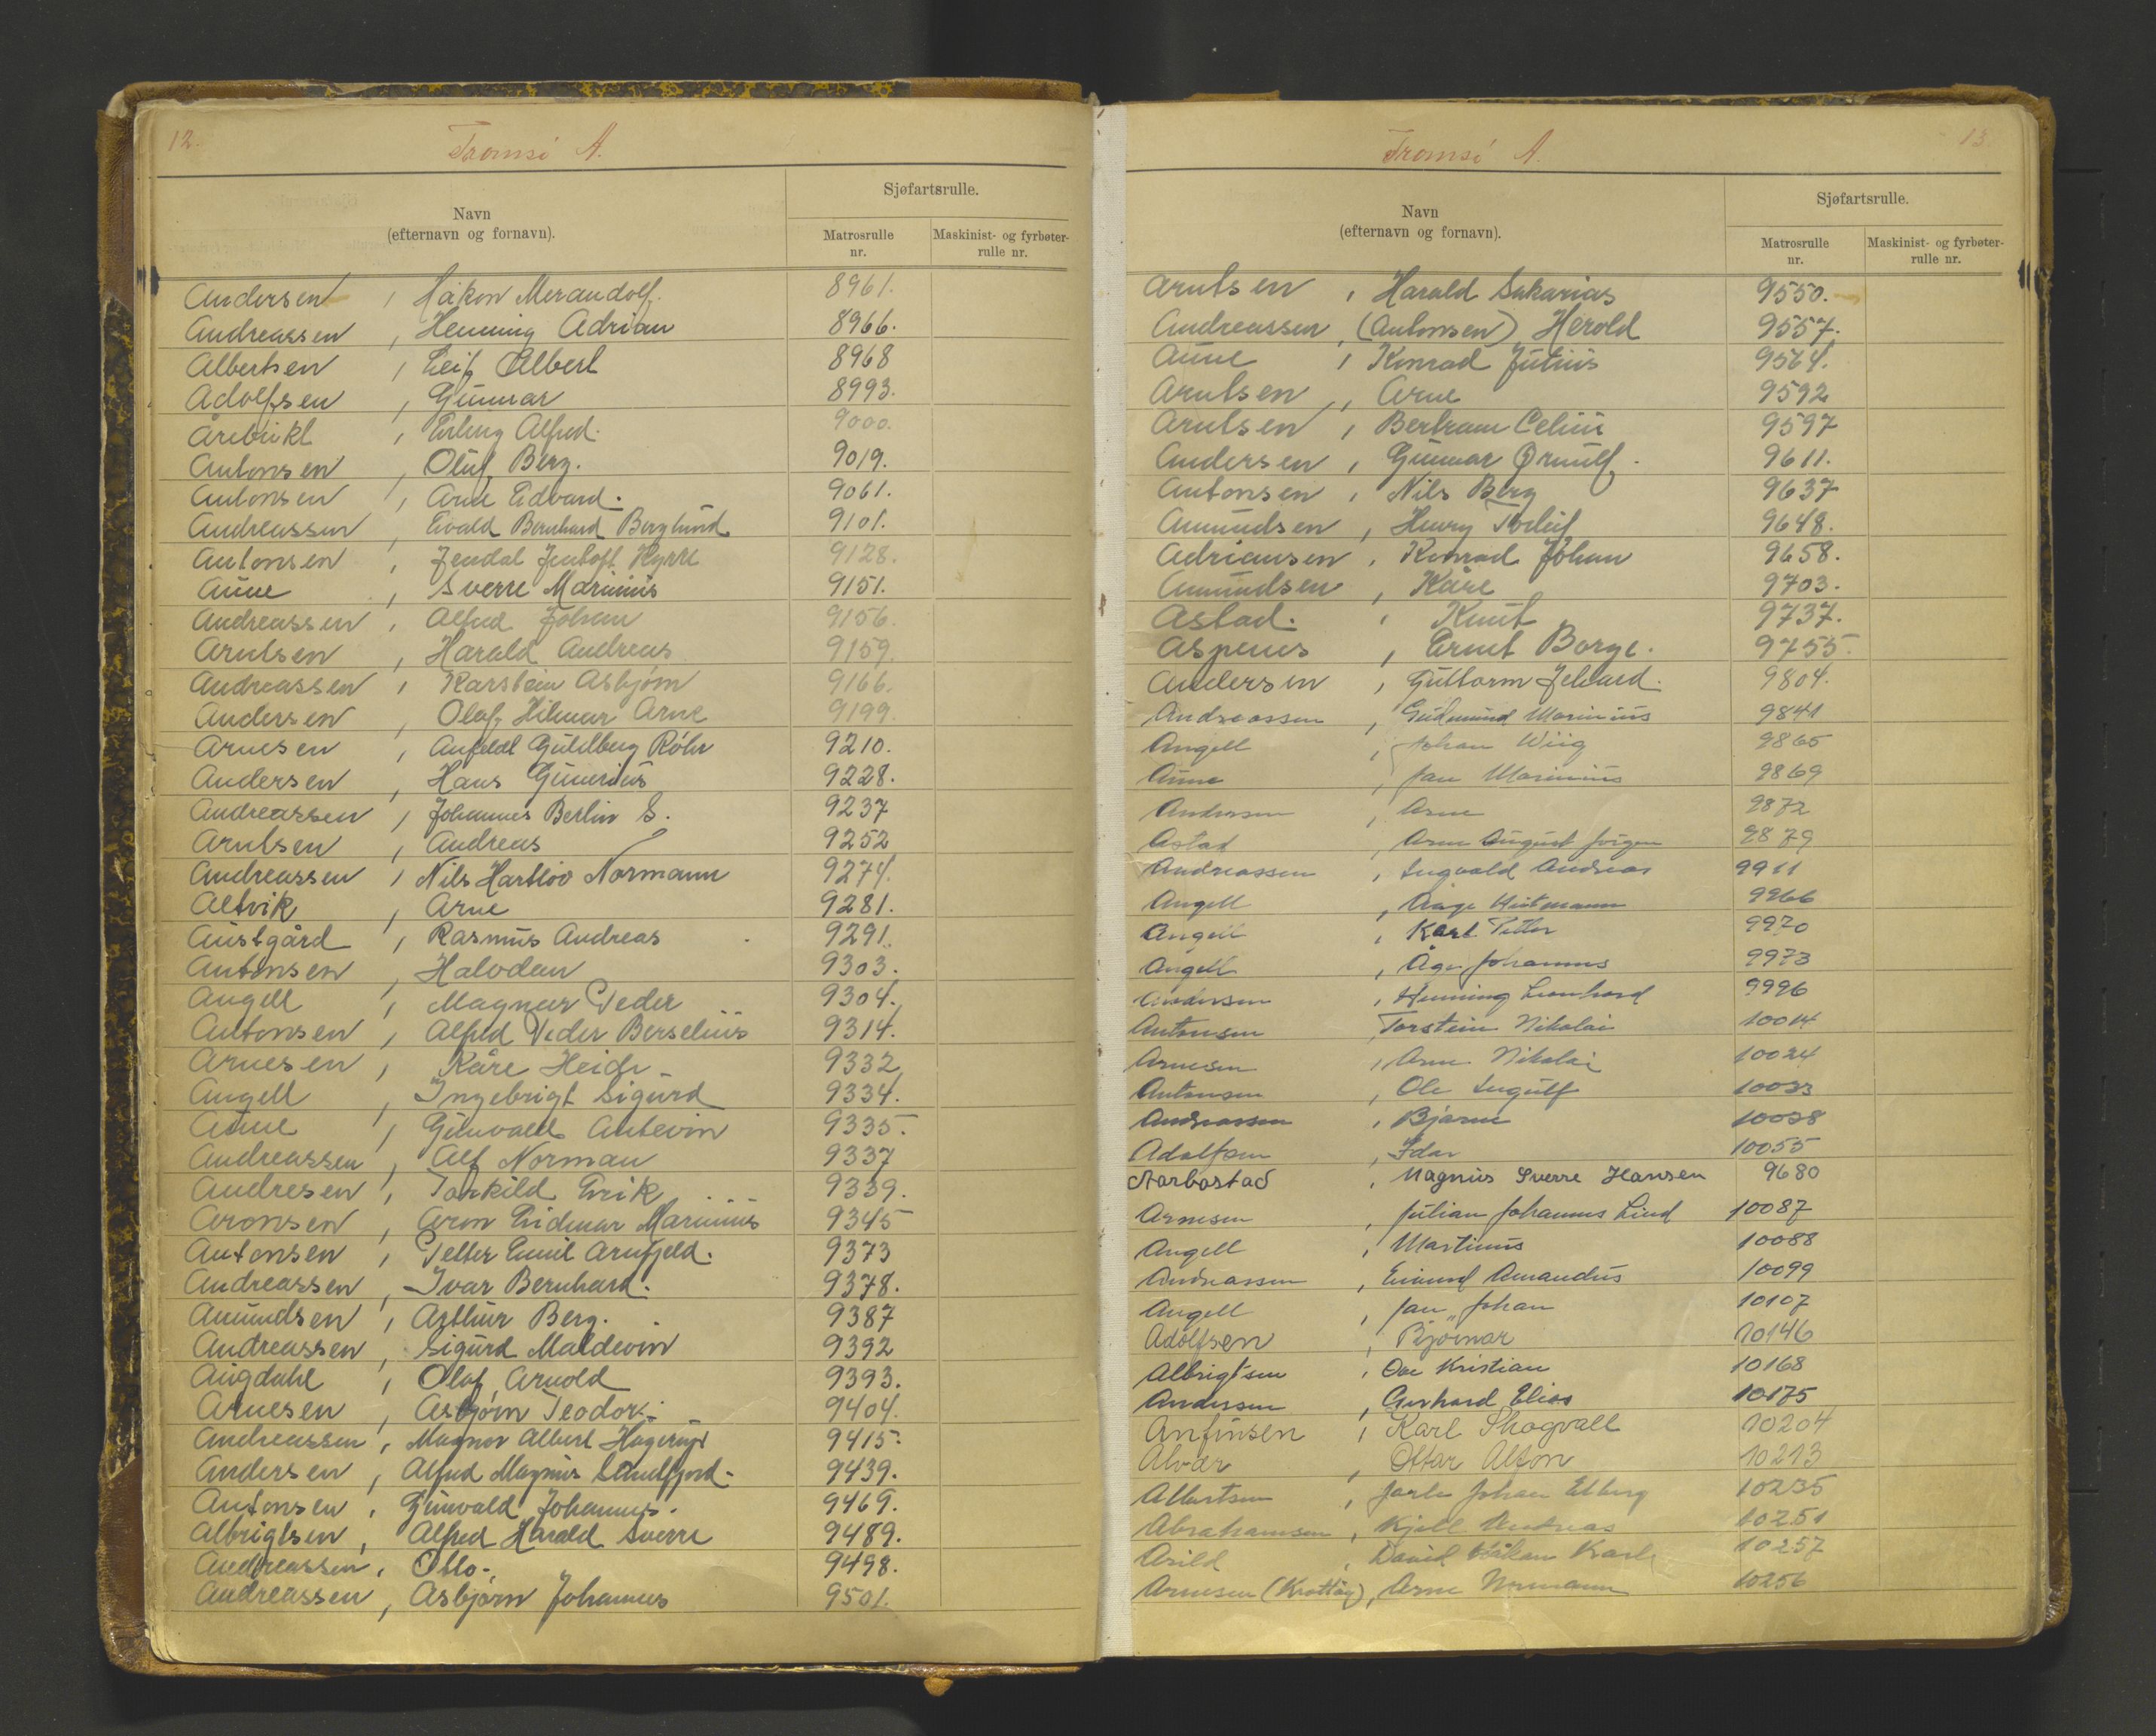 12.
Tromsö A.
Navn
(efternavn og fornavn).
Sjøfartsrulle.
Matrosrulle nr.
Maskinist- og fyrbøter-rulle nr.
Andersen, Håkon Merandolf. 8961.
Andreassen, Henning Adrian 8966.
Albertsen, Leif Albert 8968
Adolfsen, Gunnar 8993.
Årebukt, Erling Alfred. 9000.
Antonsen, Oluf Berg. 9019.
Antonsen, Arne Edvard. 9061.
Andreassen, Evald Bernhard Berglund 9101.
Antonsen, Jendal Jentoft Kyrre 9128.
Aune, Sverre Marinius 9151.
Andreassen, Alfred Johan 9156.
Arntsen, Harald Andreas 9159.
Andreassen, Karstein Asbjørn 9166.
Andersen, Olaf Hilmar Arne 9199.
Arnesen, Anfeldt Guldberg Röhr 9210.
Andersen, Hans Gunerius 9228.
Andreassen, Johannes Berlin S. 9237
Arntsen, Andreas 9252
Andreassen, Nils Hartlöv Normann 9274.
Altvik, Arne 9281.
Austgård, Rasmus Andreas 9291.
Antonsen, Halvdan 9303.
Angell, Magnar Peder 9304.
Antonsen, Alfred Peder Berselius 9314.
Arnesen, Kåre Heide 9332
Angell, Ingebrigt Sigurd 9334.
Aune, Gunvald Antevin 9335.
Andreassen, Alf Norman 9337
Andresen, Torkild Erik 9339.
Aronsen, Aron Eidmar Marinus 9345
Antonsen, Petter Emil Arnfjeld. 9373
Andreassen, Ivar Bernhard. 9378.
Amundsen, Arthur Berg. 9387
Andreassen, Sigurd Maldevin 9392
Augdahl, Olaf Arnold 9393.
Arnesen, Asbjørn Teodor. 9404.
Andreassen, Magnor Albert Hagerup 9415.
Andersen, Alfred Magnus Sandfjord. 9439.
Antonsen, Gunvald Johannes. 9469.
Albrigtsen, Alfred Harald Sverre 9489.
Andreassen, Otto. 9498.
Andreassen, Asbjørn Johannes 9501.
13.
Tromsö A.
Navn
(efternavn og fornavn).
Sjøfartsrulle.
Matrosrulle nr.
Maskinist- og fyrbøter-rulle nr.
Arntsen, Harald Sakarias 9550.
Andreassen, (Antonsen) Herold 9557.
Aune, Konrad Julius 9564.
Arntsen, Arne 9592
Arntsen, Bertram Celius 9597
Andersen, Gunnar Ørnulf. 9611.
Antonsen, Nils Berg 9637
Amundsen, Henry Torleif 9648.
Adriansen, Konrad Johan 9658.
Amundsen, Kåre 9703.
Astad., Knut 9737.
Aspenes, Ernst Borge. 9755.
Andersen, Guttorm Jelvard. 9804.
Andreassen, Gudmund Marinius 9841
Angell, Johan Wiig 9865
Aune, Jan Marinius 9869
Andersen, Arne 9872
Astad, Arne August Jørgen 9879
Andreassen, Ingvald Andreas 9911
Angell, Aage Heitmann 9966
Angell, Karl Petter 9970
Angell, Åge Johannes 9973
Andersen, Henning Leonhard 9996
Antonsen, Torstein Nikolai 10014
Arnesen, Arne Nikolai 10024
Antonsen, Ole Ingulf 10033
Andreassen, Bjarne 10038
Adolfsen, Idar 10055
Aarbostad, Magnus Sverre Hansen 9680
Arnesen, Julian Johannes Lind 10087
Angell, Martinus 10088
Andreassen, Edmund Amandus 10099
Angell, Jan Johan 10107
Adolfsen, Bjørnar 10146
Albrigtsen, Ove Kristian 10168
Andersen, Gerhard Elias 10175
Anfinsen, Karl Skogvall 10204
Alvær, Ottar Alfon 10213
Albertsen, Jarle Johan Elberg 10235
Abrahamsen, Kjell Andreas 10251
Arild, David Håkon Karl 10257
Arnesen (Krattøy), Arne Normann 10256